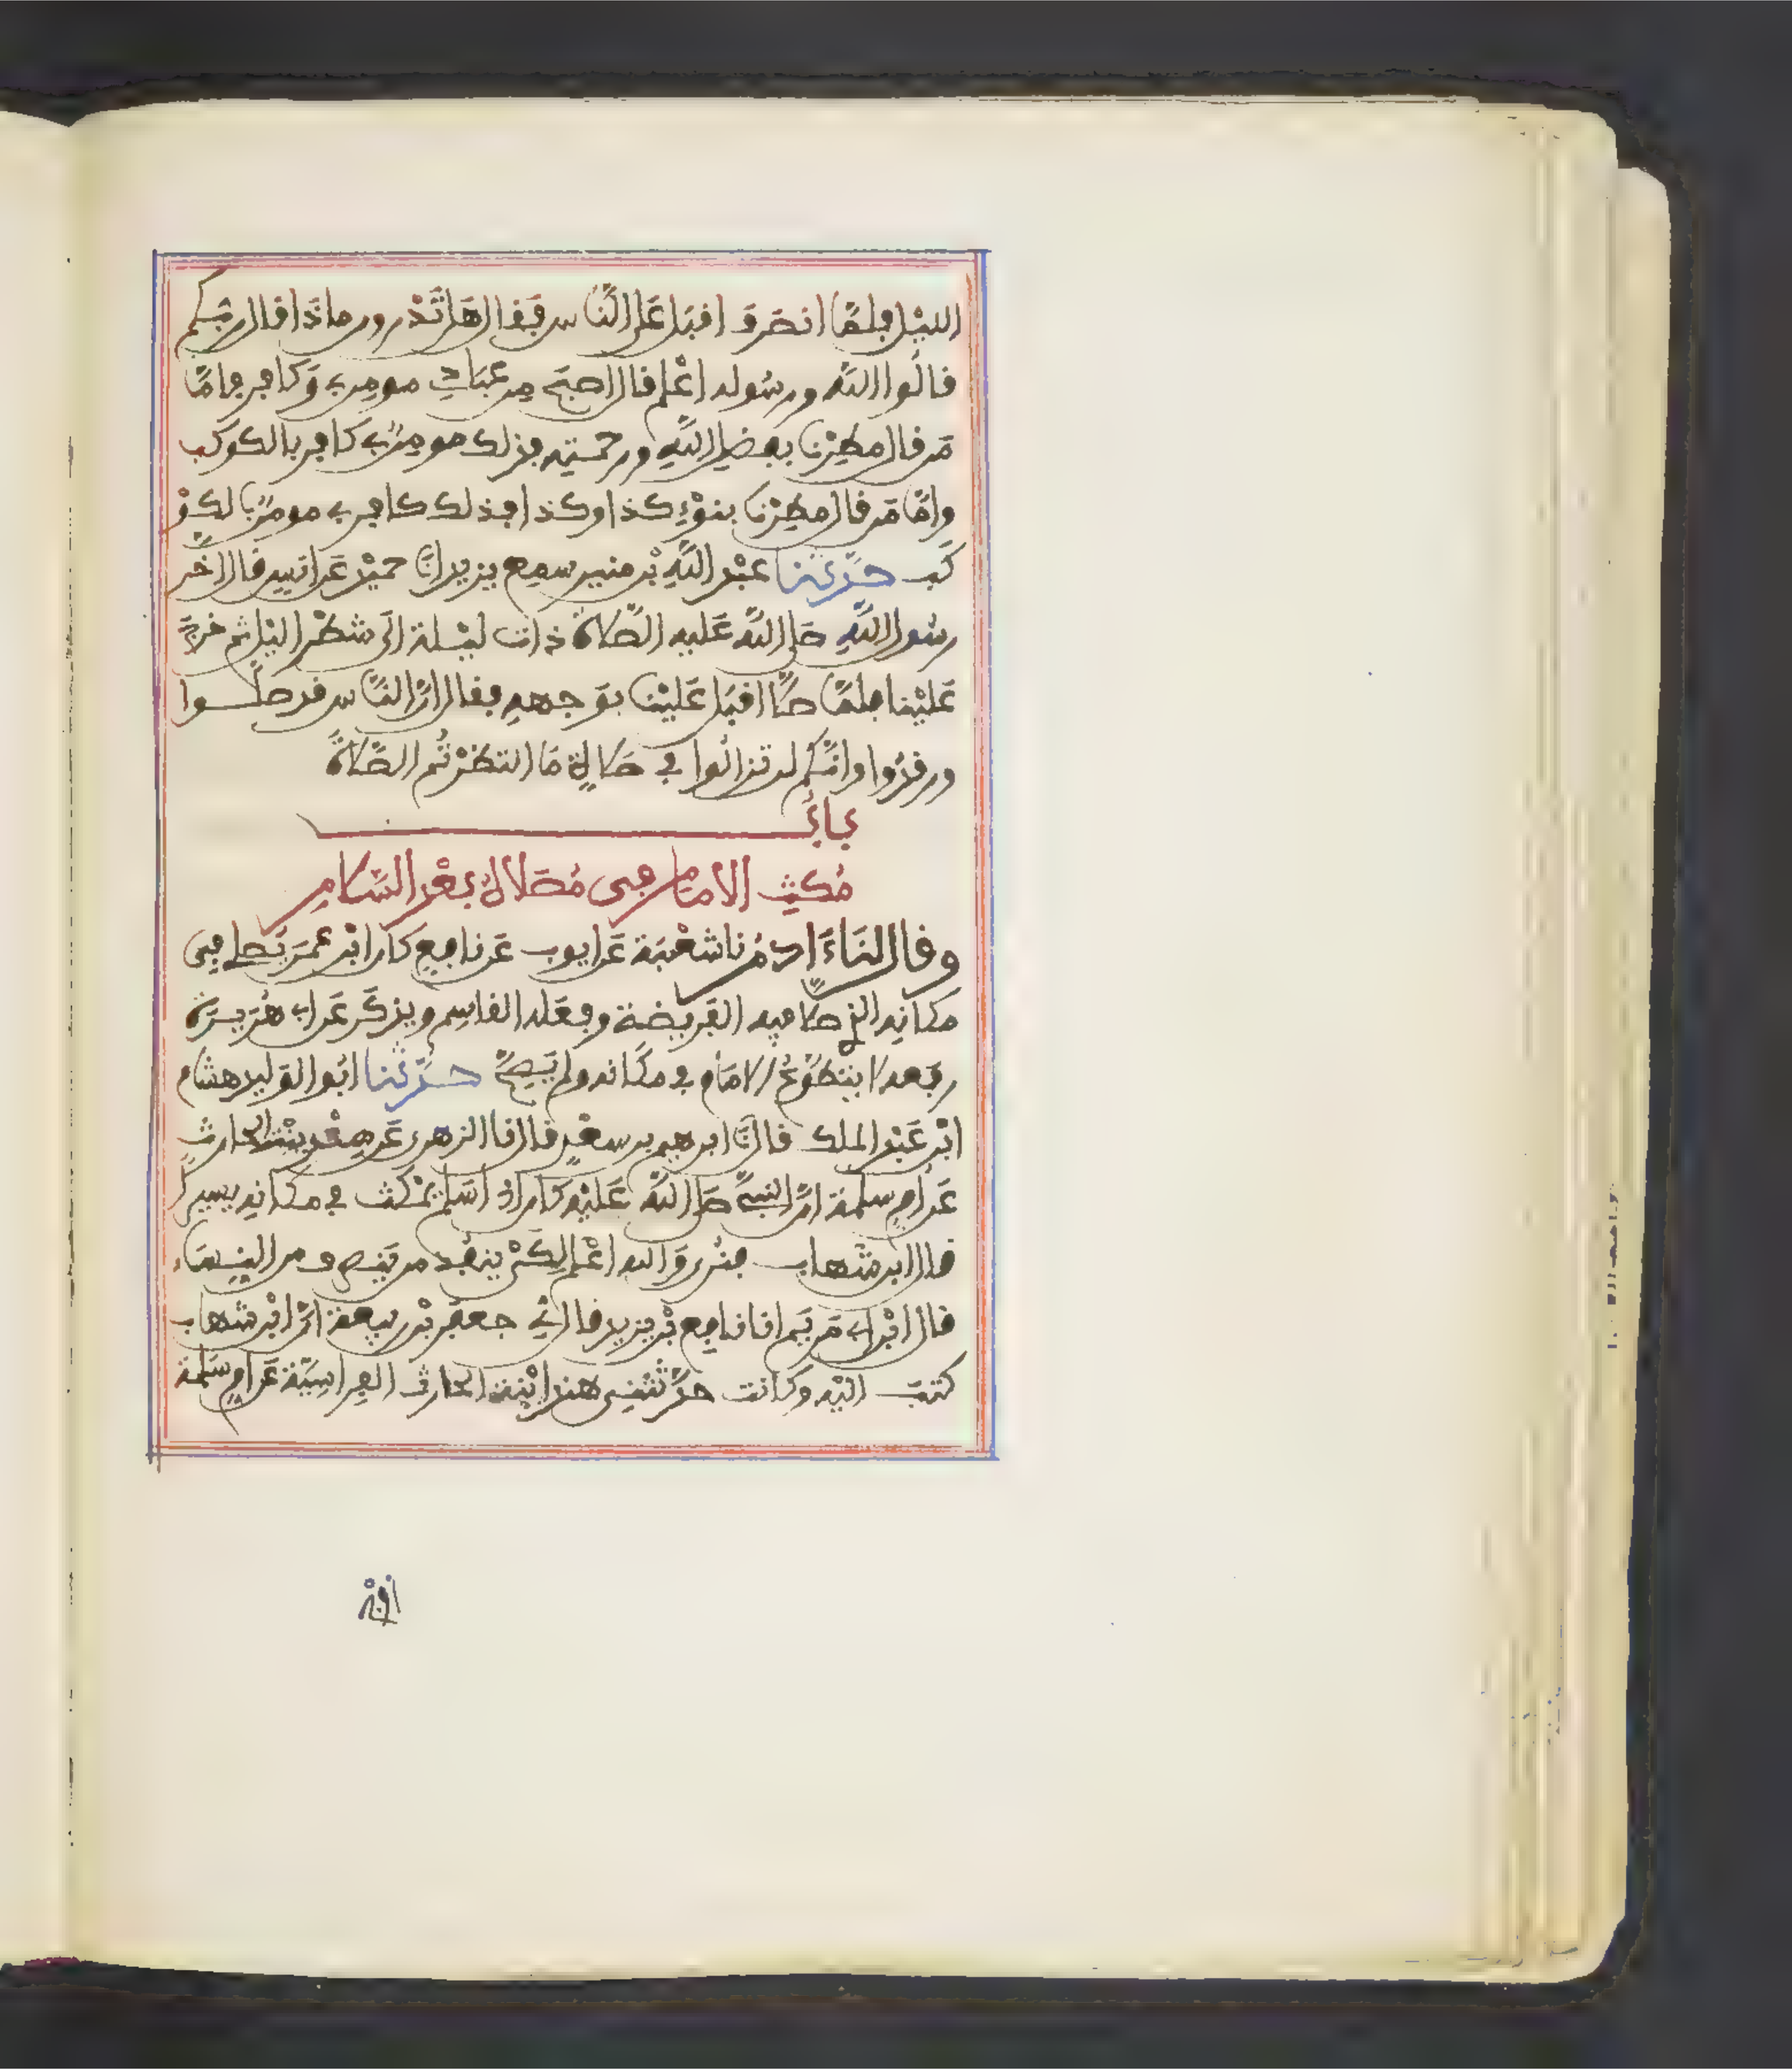 الليْل فلمَّا انصَرفَ اقبَل عَلى النَّاس فَقال هَل تَدْرون ماذَا قال ربّكم
قالُوا اللَّه ورسُوله اعْلم قال اصبَح مِن عبَادِي مومِن بي وَكافر فامَّا
مَن قال مطِرْنا بفضل اللَّهِ ورحمتِه فذلك مومِنٌ بي كافر بالكوكب
وامَّا مَن قال مطِرْنا بنوْءِ كذا وكذا فذلك كافر بي مومِنٌ بالكوْ
كَب حدَّثنا عبْد اللَّهِ بْن منير سمع يزيد انَا حميْد عَن انسٍ قال اخَّر
رسُول اللَّهِ صلى اللَّه عَليه الصَّلاةَ ذات ليْلة الَى شطْر اليْل ثم خرجَ
عَليْنا فلمَّا صلَّى اقبَل عَليْنا بوَجههِ فقال انَّ النَّاس قد صلَّوا
ورقدُوا وانَّكُم لن تزالُوا في صَلاةٍ مَا انتظرْتُم الصَّلاةَ
بابُ
مُكثِ الامام في مُصَلاهُ بعْد السَّلامِ
وقال لنَا ءَادمُ نا شعْبَة عَن ايوب عَن نافِع كان ابْن عمَر يَصلي في
مكانِه الذي صلَّى فيه الفَريضة وفعَله القاسِم ويذكَر عَن ابي هُرَيرَة
رفَعه لا يتطوَّعُ الامَام في مكَانه ولم يَصِحَّ حدَّثنا ابُو الوَليد هشام
ابْن عَبْد الملك قال نَا ابرهيم بن سعْدٍ قال نا الزهري عَن هِنْد بنْت الحارث
عَن امِ سلمة انَّ النبيَّ صَلى اللَّه عَليْه كَان اذا سَلم يمْكث في مكانِه يسيرًا
قال ابن شهاب فنُرى وَالله اعْلم لكَيْ ينفُذ من يَنصرف من النِسَاء
قال ابْن ابي مَريَم انا نافِع بْن يزيد قال ني جعفَر بْن ربيعة انَّ ابْن شهاب
كتبَ اليْه وكانت حدَّثتني هند ابْنة الحارث الفِراسِيَّة عَن امِ سَلمة